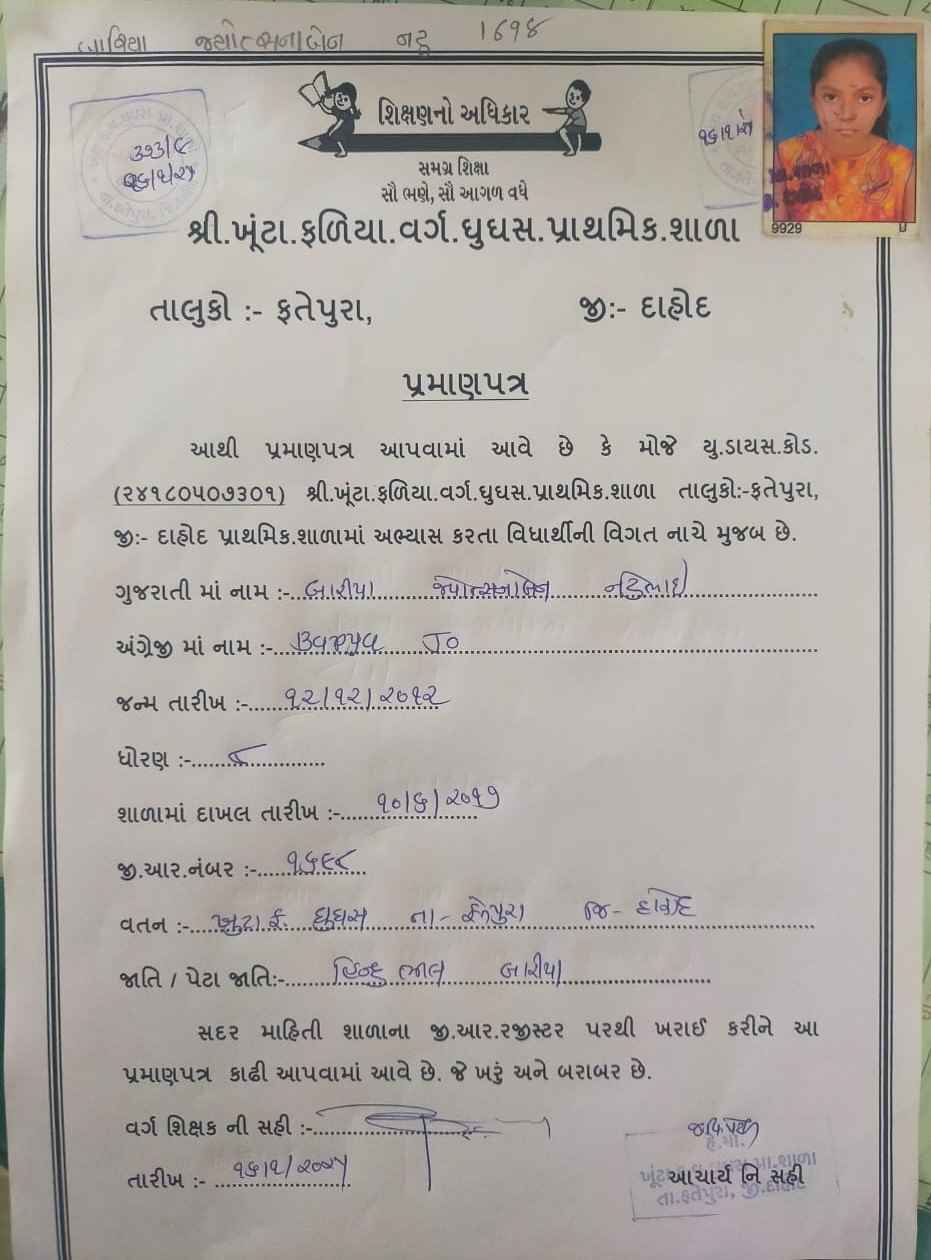 બારિયા જ્યોત્સનાબેન નટુ 1698
શિક્ષણનો અધિકાર
સમગ્ર શિક્ષા
સૌ ભણે, સૌ આગળ વધે
9929
શ્રી.ખૂંટા.ફળિયા.વર્ગ.ઘુઘસ.પ્રાથમિક.શાળા
તાલુકો :- ફતેપુરા, જી:- દાહોદ
પ્રમાણપત્ર
આથી પ્રમાણપત્ર આપવામાં આવે છે કે મોજે યુ.ડાયસ.કોડ.
(૨૪૧૮૦૫૦૭૩૦૧) શ્રી.ખૂંટા.ફળિયા.વર્ગ.ઘુઘસ.પ્રાથમિક.શાળા તાલુકો:-ફતેપુરા,
જી:- દાહોદ પ્રાથમિક.શાળામાં અભ્યાસ કરતા વિધાર્થીની વિગત નાચે મુજબ છે.
ગુજરાતી માં નામ :- બારીયા જ્યોત્સનાબેન
અંગ્રેજી માં નામ :- Bariya Jo
જન્મ તારીખ :- ૧૨/૧૨/૨૦૧૨
ધોરણ :- ૮
શાળામાં દાખલ તારીખ :- ૧૦/૬/૨૦૧૭
જી.આર.નંબર :- ૧૬૯૮
વતન :- ખુટા.ફ. ઘુઘસ તા- ફતેપુરા જિ- દાહોદ
જાતિ / પેટા જાતિ:- હિન્દુ ભીલ બારીયા
સદર માહિતી શાળાના જી.આર.રજીસ્ટર પરથી ખરાઈ કરીને આ
પ્રમાણપત્ર કાઢી આપવામાં આવે છે. જે ખરું અને બરાબર છે.
વર્ગ શિક્ષક ની સહી :-
તારીખ :- ૧૬/૧/૨૦૨૫
આચાર્ય નિ સહી
તા.ફતેપુરા, જી.દાહોદ